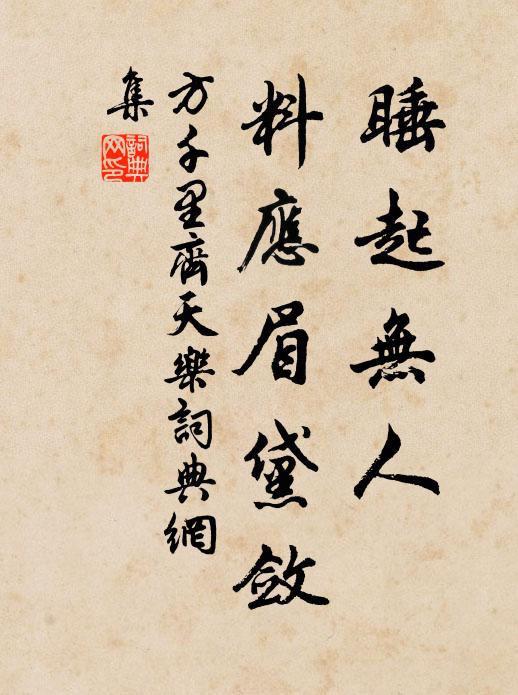 睡起無人
料應眉黛斂
方千里齊天樂詞典網
集
詞典
网印